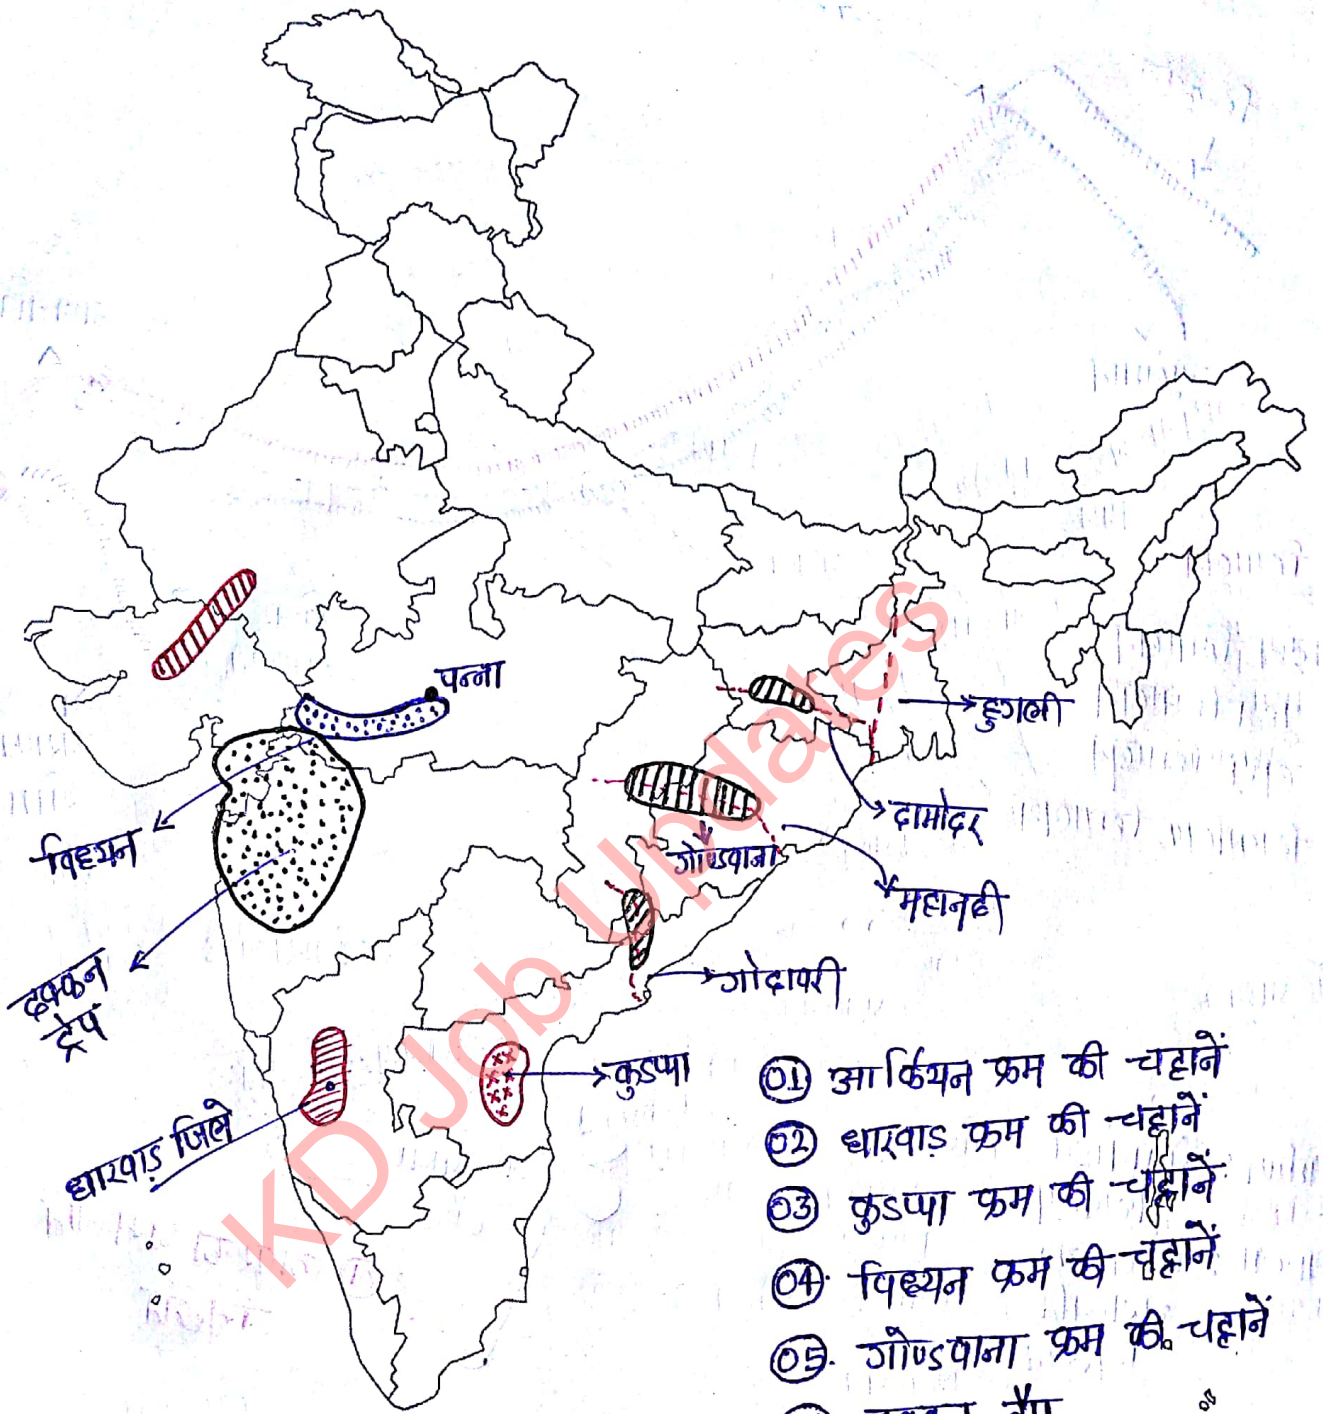 पन्ना
हुगली
दामोदर
गोण्डवाना
महानदी
विंध्यन
गोदावरी
दक्कन
ट्रेप
कुडप्पा
धारवाड़ जिले
KD Job Updates
01 आर्कियन क्रम की चट्टानें
02 धारवाड़ क्रम की चट्टानें
03 कुडप्पा क्रम की चट्टानें
04. विंध्यन क्रम की चट्टानें
05. गोण्डवाना क्रम की चट्टानें